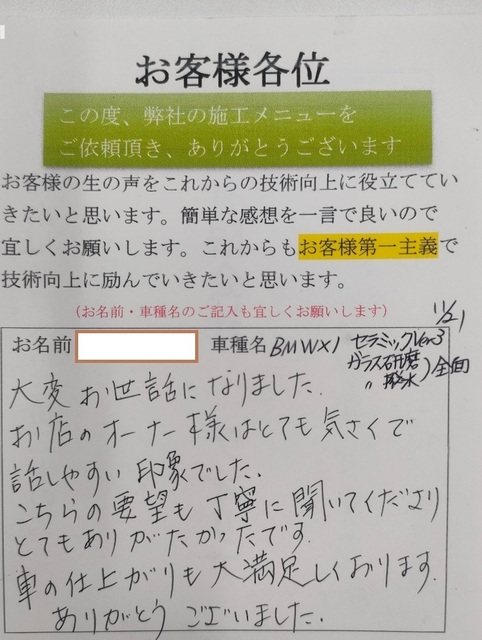 お客様各位
この度、弊社の施工メニューを
ご依頼頂き、ありがとうございます
お客様の生の声をこれからの技術向上に役立ててい
きたいと思います。簡単な感想を一言で良いので
宜しくお願いします。これからもお客様第一主義で
技術向上に励んでいきたいと思います。
(お名前・車種名のご記入も宜しくお願いします)
11/21
お名前 車種名 BMWX1 セラミックVer3
ガラス研磨
〃 撥水 ) 全面
大変お世話になりました.
お店のオーナー様はとても気さくで
話しやすい印象でした.
こちらの要望も丁寧に聞いてくださり
とてもありがたかったです.
車の仕上がりも大満足しております.
ありがとうございました.